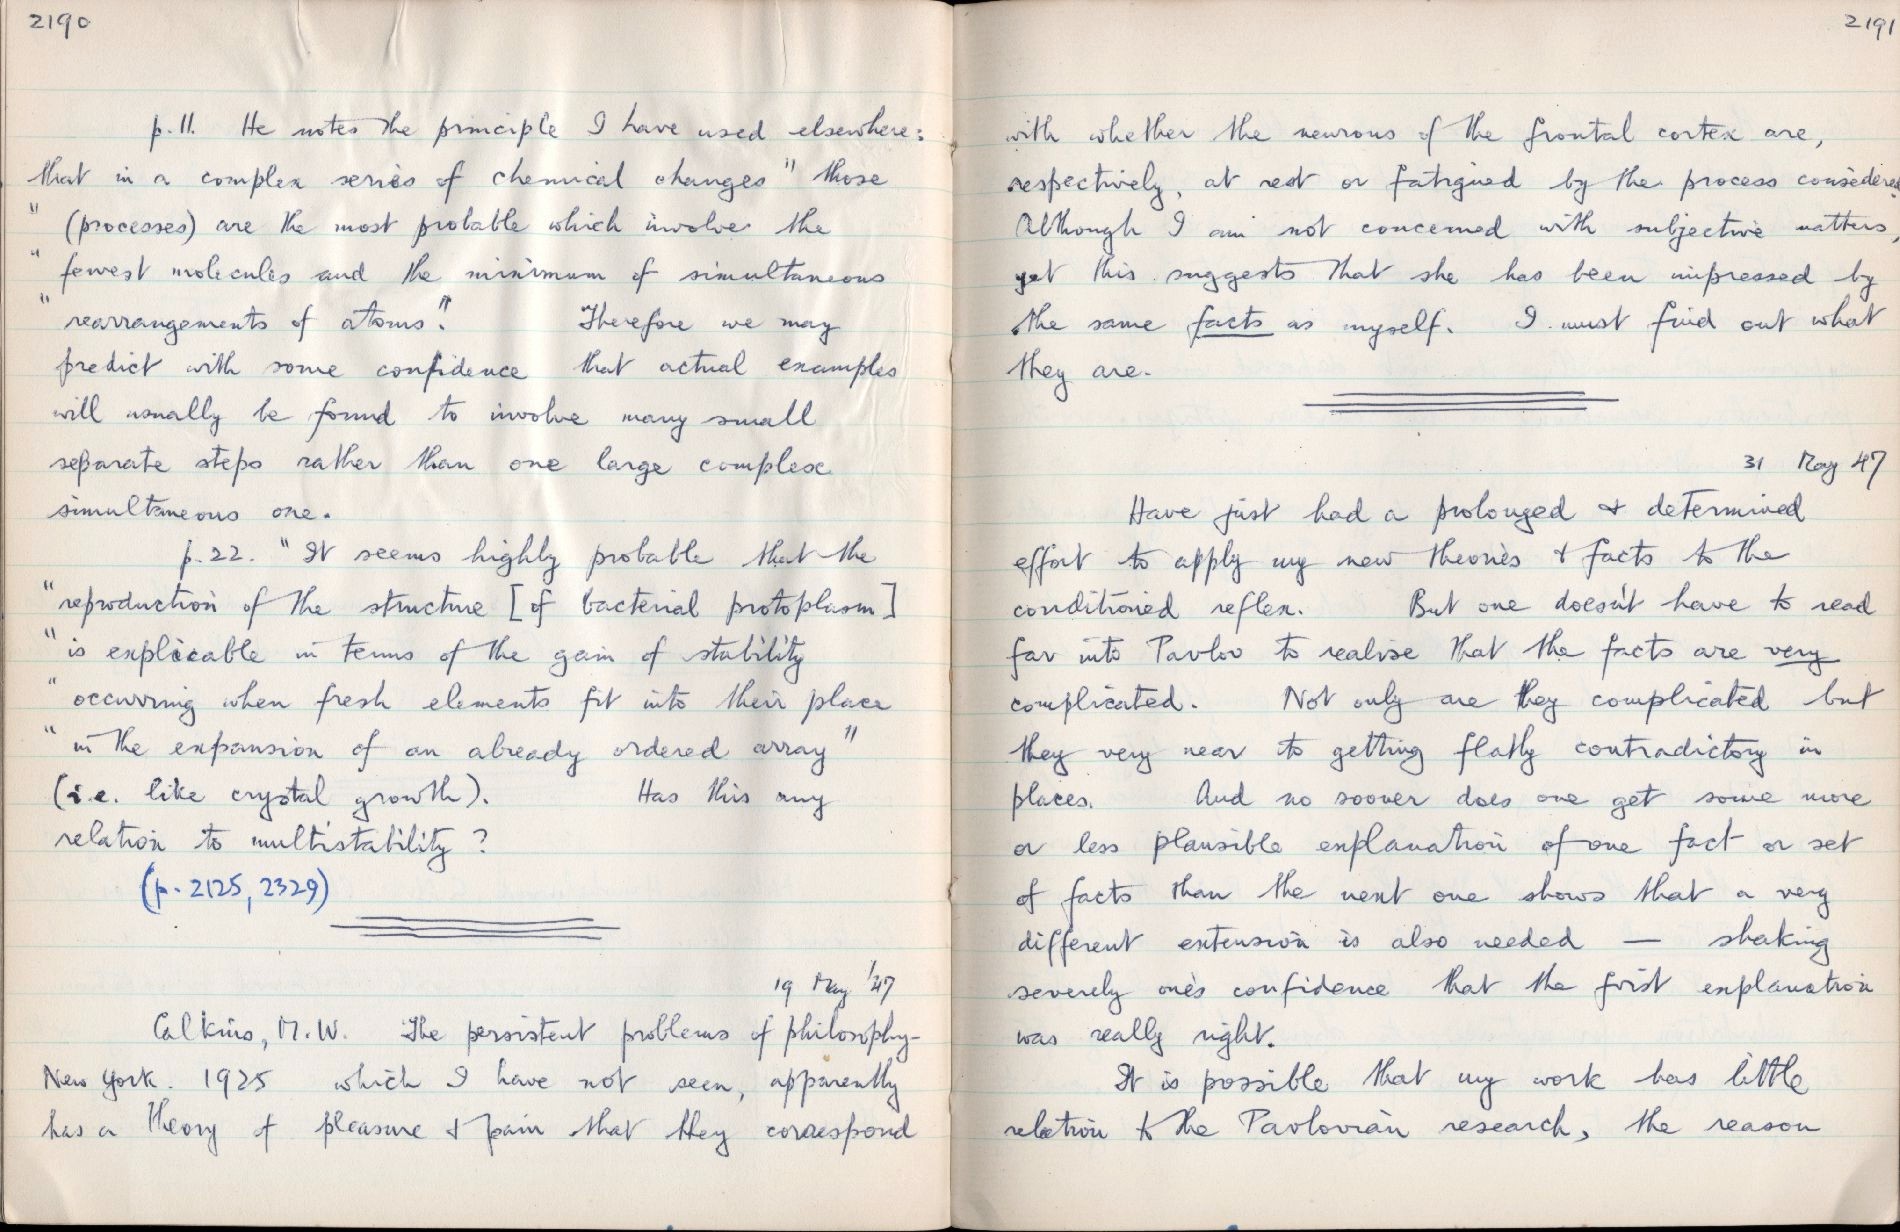 2190
p.11. He notes the principle I have used elsewhere:
that in a complex series of chemical changes " those
" (processes) are the most probable which involve the
" fewest molecules and the minimum of simultaneous
" rearrangements of atoms". Therefore we may
predict with some confidence that actual examples
will usually be found to involve many small
separate steps rather than one large complex
simultaneous one.
p.22. "It seems highly probable that the
"reproduction of the structure [of bacterial protoplasm]
"is explicable in terms of the gain of stability
"occurring when fresh elements fit into their place
"in the expansion of an already ordered array"
(i.e. like crystal growth). Has this any
relation to multistability?
(p. 2125, 2329)
19 May '47
Calkins, M.W. The persistent problems of philosophy.
New York. 1925 which I have not seen, apparently
has a theory of pleasure & pain that they correspond
2191
with whether the neurons of the frontal cortex are,
respectively, at rest or fatigued by the process considered.
Although I am not concerned with subjective matters,
yet this suggests that she has been impressed by
the same facts as myself. I must find out what
they are.
31 May 47
Have just had a prolonged & determined
effort to apply my new theories & facts to the
conditioned reflex. But one doesn't have to read
far into Pavlov to realise that the facts are very
complicated. Not only are they complicated but
they very near to getting flatly contradictory in
places. And no sooner does one get some more
or less plausible explanation of one fact or set
of facts than the next one shows that a very
different extension is also needed — shaking
severely one's confidence that the first explanation
was really right.
It is possible that my work has little
relation to the Pavlovian research, the reason